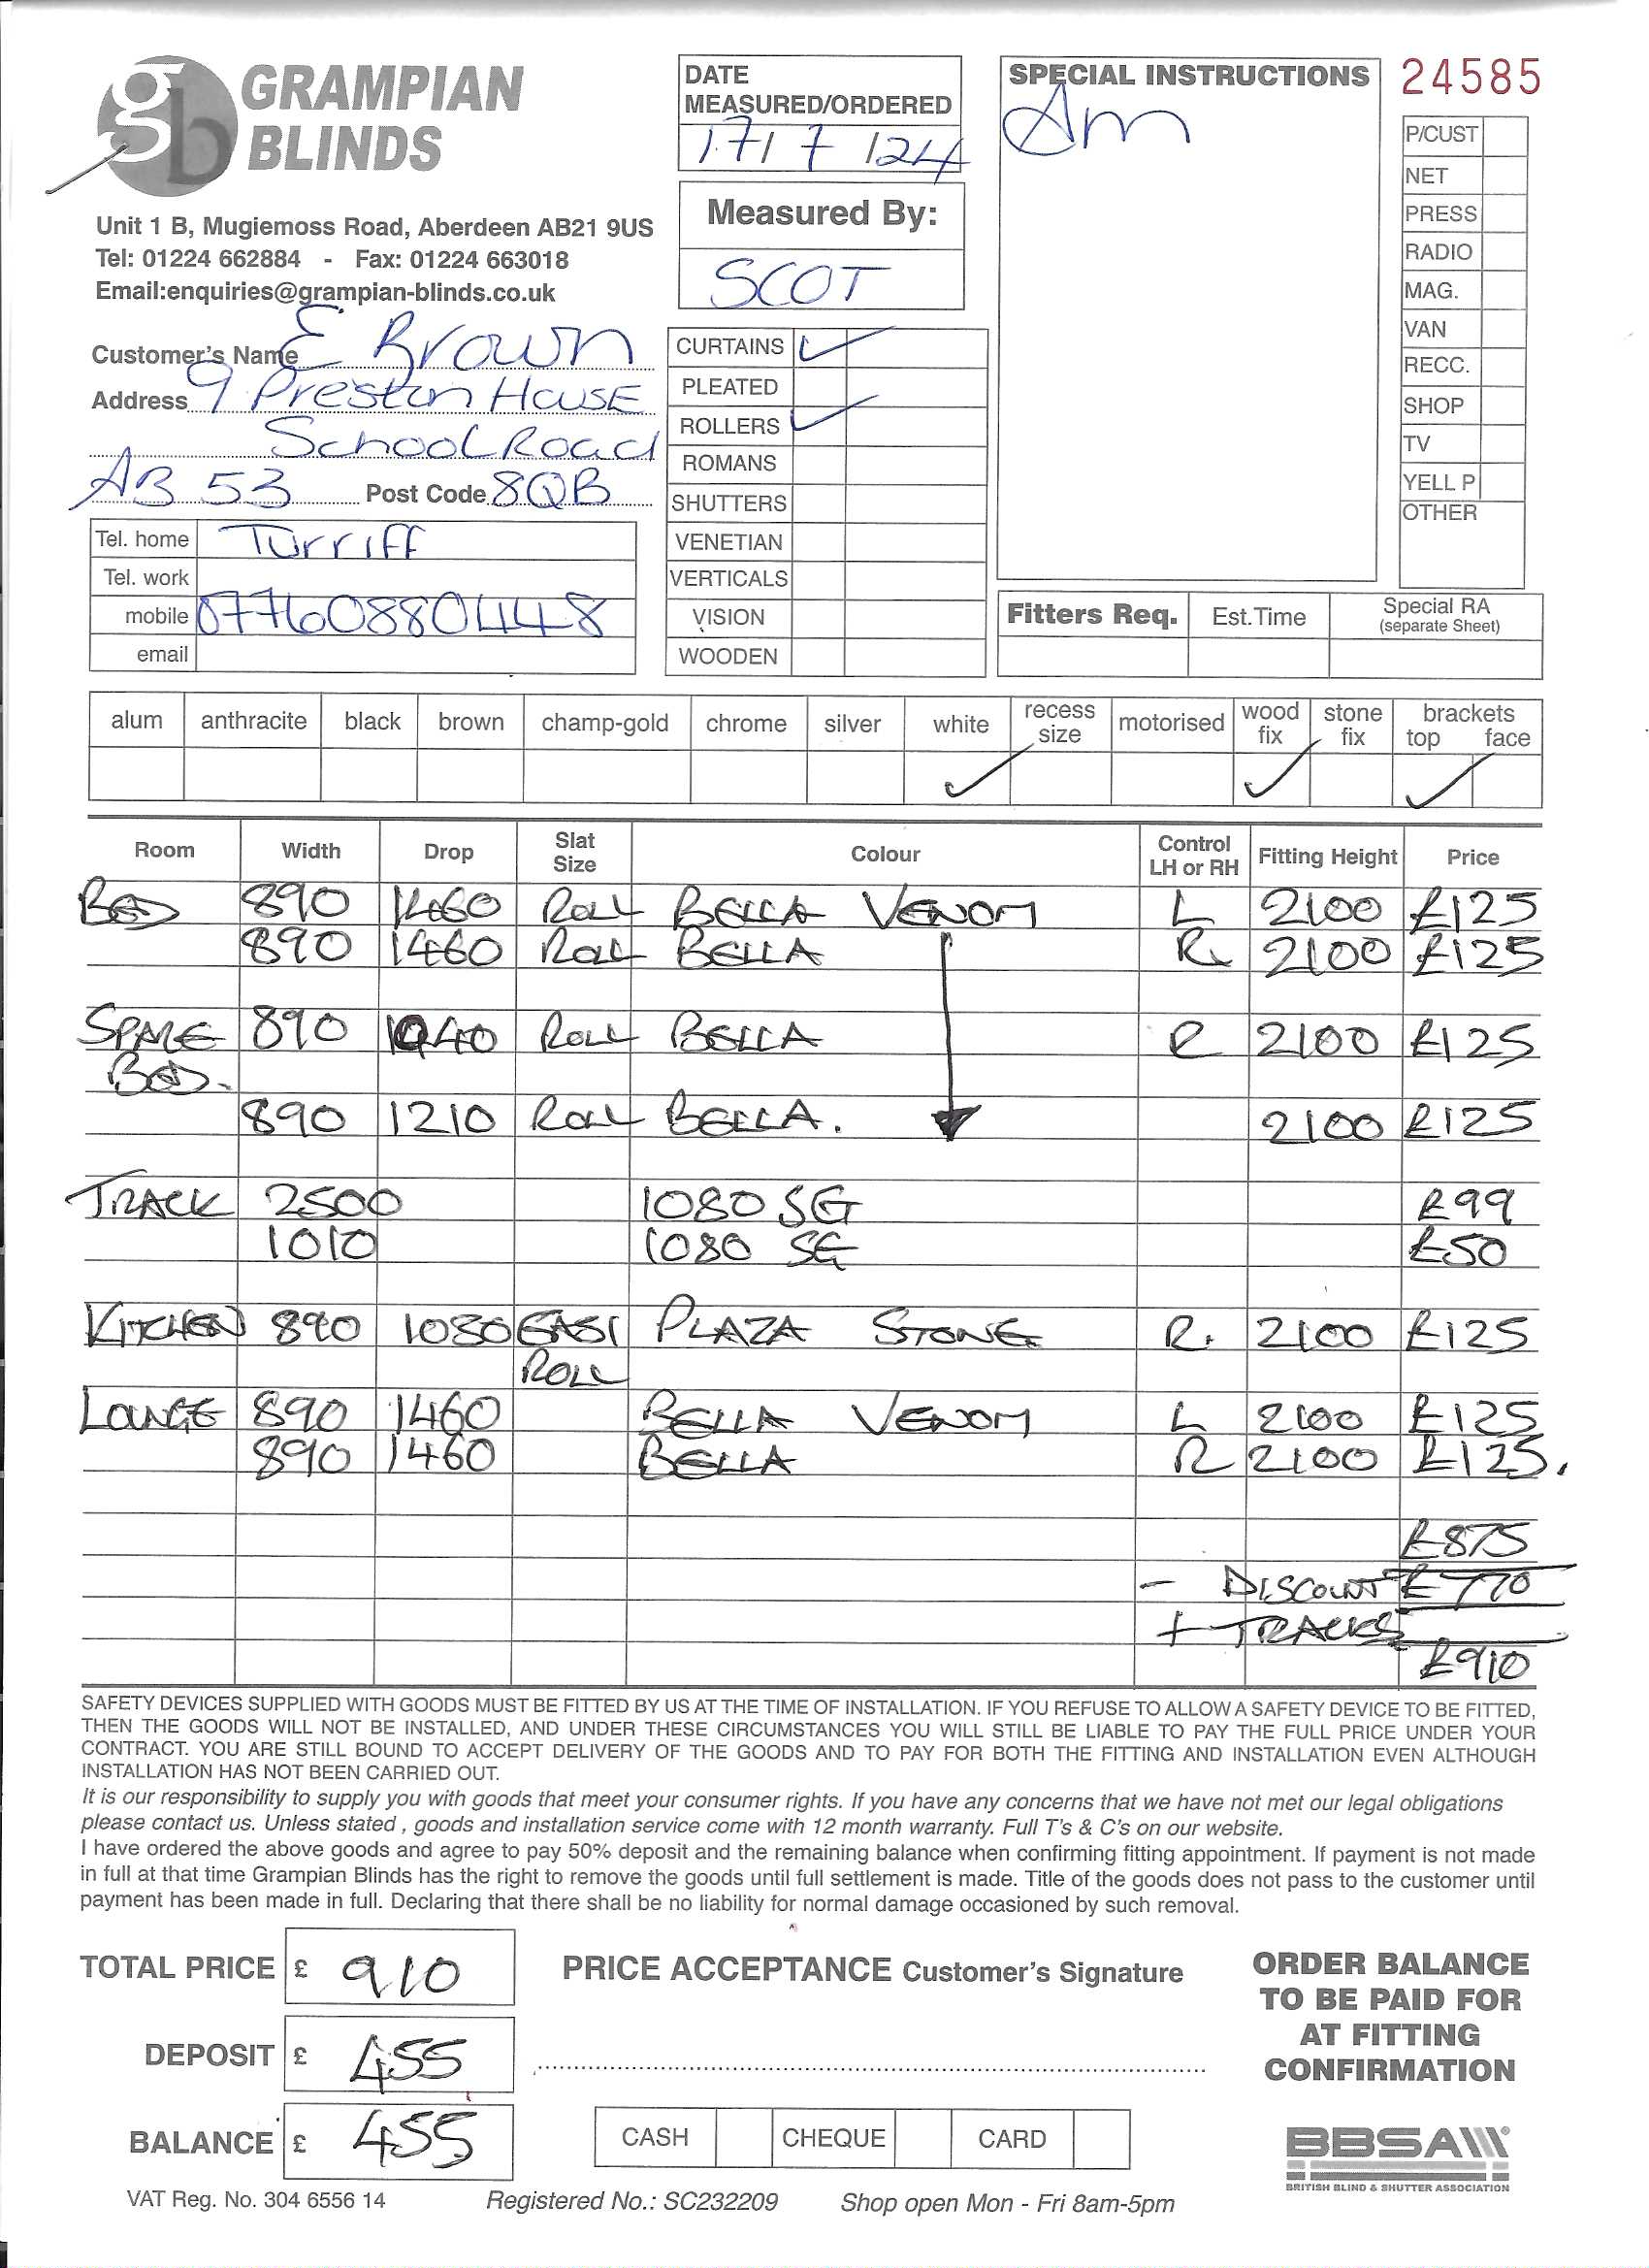 GRAMPIAN BLINDS
Unit 1 B, Mugiemoss Road, Aberdeen AB21 9US
Tel: 01224 662884 - Fax: 01224 663018
Email:enquiries@grampian-blinds.co.uk
DATE MEASURED/ORDERED
17/7/24
Measured By:
SCOT
SPECIAL INSTRUCTIONS
Am
24585
P/CUST
NET
PRESS
RADIO
MAG.
VAN
RECC.
SHOP
TV
YELL P
OTHER
Customer's Name E Brown
Address 9 Preston House
School Road
AB 53 Post Code 8QB
Tel. home Turriff
Tel. work
mobile 07760880448
email
CURTAINS ✓
PLEATED
ROLLERS ✓
ROMANS
SHUTTERS
VENETIAN
VERTICALS
VISION
WOODEN
Fitters Req. Est.Time Special RA (separate Sheet)
alum anthracite black brown champ-gold chrome silver white recess size motorised wood fix stone fix brackets top face
✓ ✓ ✓
Room Width Drop Slat Size Colour Control LH or RH Fitting Height Price
BED 890 1460 ROLL BELLA VENOM L 2100 £125
890 1460 ROLL BELLA R 2100 £125
SPARE 890 1040 ROLL BELLA R 2100 £125
BED.
890 1210 ROLL BELLA. 2100 £125
TRACK 2500 1080 SG £99
1010 1080 SG £50
KITCHEN 890 1030 EASI PLAZA STONE R. 2100 £125
ROLL
LOUNGE 890 1460 BELLA VENOM L 2100 £125
890 1460 BELLA R 2100 £125.
£875
- DISCOUNT £770
+ TRACKS
£910
SAFETY DEVICES SUPPLIED WITH GOODS MUST BE FITTED BY US AT THE TIME OF INSTALLATION. IF YOU REFUSE TO ALLOW A SAFETY DEVICE TO BE FITTED,
THEN THE GOODS WILL NOT BE INSTALLED, AND UNDER THESE CIRCUMSTANCES YOU WILL STILL BE LIABLE TO PAY THE FULL PRICE UNDER YOUR
CONTRACT. YOU ARE STILL BOUND TO ACCEPT DELIVERY OF THE GOODS AND TO PAY FOR BOTH THE FITTING AND INSTALLATION EVEN ALTHOUGH
INSTALLATION HAS NOT BEEN CARRIED OUT.
It is our responsibility to supply you with goods that meet your consumer rights. If you have any concerns that we have not met our legal obligations
please contact us. Unless stated , goods and installation service come with 12 month warranty. Full T's & C's on our website.
I have ordered the above goods and agree to pay 50% deposit and the remaining balance when confirming fitting appointment. If payment is not made
in full at that time Grampian Blinds has the right to remove the goods until full settlement is made. Title of the goods does not pass to the customer until
payment has been made in full. Declaring that there shall be no liability for normal damage occasioned by such removal.
TOTAL PRICE £ 910
DEPOSIT £ 455
BALANCE £ 455
PRICE ACCEPTANCE Customer's Signature
CASH CHEQUE CARD
ORDER BALANCE
TO BE PAID FOR
AT FITTING
CONFIRMATION
BBSA
BRITISH BLIND & SHUTTER ASSOCIATION
VAT Reg. No. 304 6556 14 Registered No.: SC232209 Shop open Mon - Fri 8am-5pm